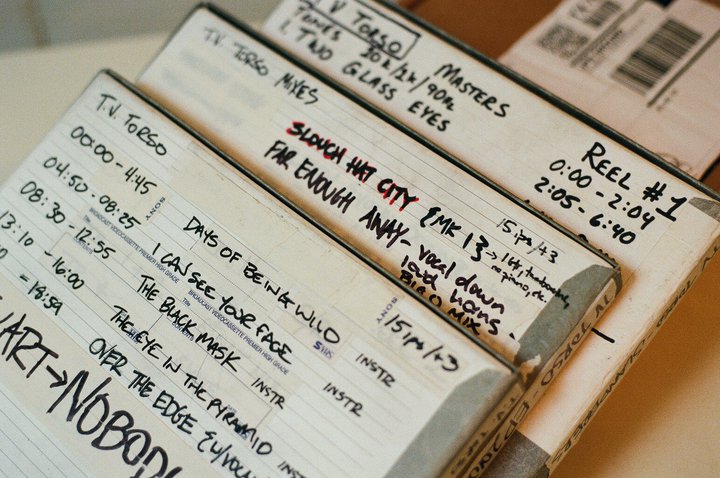 T.V. TORSO
MASTERS
TONES 20k/2k/90Hz
1. TWO GLASS EYES
REEL #1
0:00 - 2:04
2:05 - 6:40
T.V. TORSO MIXES
SLOUCH HAT CITY
FAR ENOUGH AWAY - vocal down
loud horns.
BIG O MIX
15 ips/+3
T.V. TORSO
15 ips/+3
00:00 - 4:45 DAYS OF BEING WILD INSTR
04:50 - 08:25 I CAN SEE YOUR FACE INSTR
08:30 - 12:55 THE BLACK MASK INSTR
13:10 - 16:00 THE EYE IN THE PYRAMID INSTR
- 18:59 OVER THE EDGE
NOBODY
SONY
BROADCAST VIDEOCASSETTE PREMIER HIGH GRADE